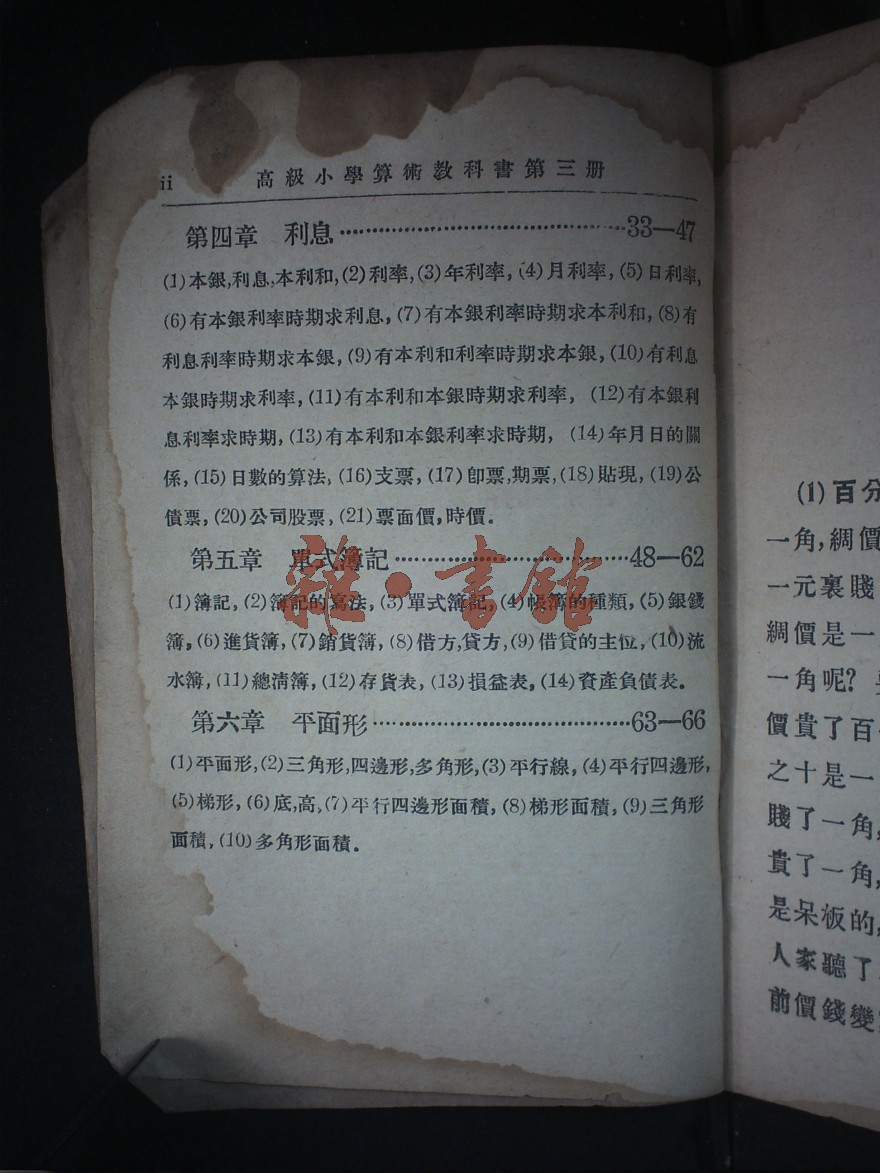 ii 高級小學算術教科書第三册
第四章 利息……………………………33—47
(1)本銀,利息,本利和,(2)利率,(3)年利率,(4)月利率,(5)日利率,
(6)有本銀利率時期求利息,(7)有本銀利率時期求本利和,(8)有
利息利率時期求本銀,(9)有本利和利率時期求本銀,(10)有利息
本銀時期求利率,(11)有本利和本銀時期求利率,(12)有本銀利
息利率求時期,(13)有本利和本銀利率求時期,(14)年月日的關
係,(15)日數的算法,(16)支票,(17)卽票,期票,(18)貼現,(19)公
債票,(20)公司股票,(21)票面價,時價.
第五章 單式簿記……………………………48—62
(1)簿記,(2)簿記的寫法,(3)單式簿記,(4)帳簿的種類,(5)銀錢
簿,(6)進貨簿,(7)銷貨簿,(8)借方,貸方,(9)借貸的主位,(10)流
水簿,(11)總清簿,(12)存貨表,(13)損益表,(14)資產負債表.
第六章 平面形……………………………63—66
(1)平面形,(2)三角形,四邊形,多角形,(3)平行線,(4)平行四邊形,
(5)梯形,(6)底,高,(7)平行四邊形面積,(8)梯形面積,(9)三角形
面積,(10)多角形面積.
雜·書館
(1)百分
一角,綢價
一元裏賤
綢價是一
一角呢?
價貴了百
之十是一
賤了一角,
貴了一角,
是呆板的,
人家聽了
前價錢變